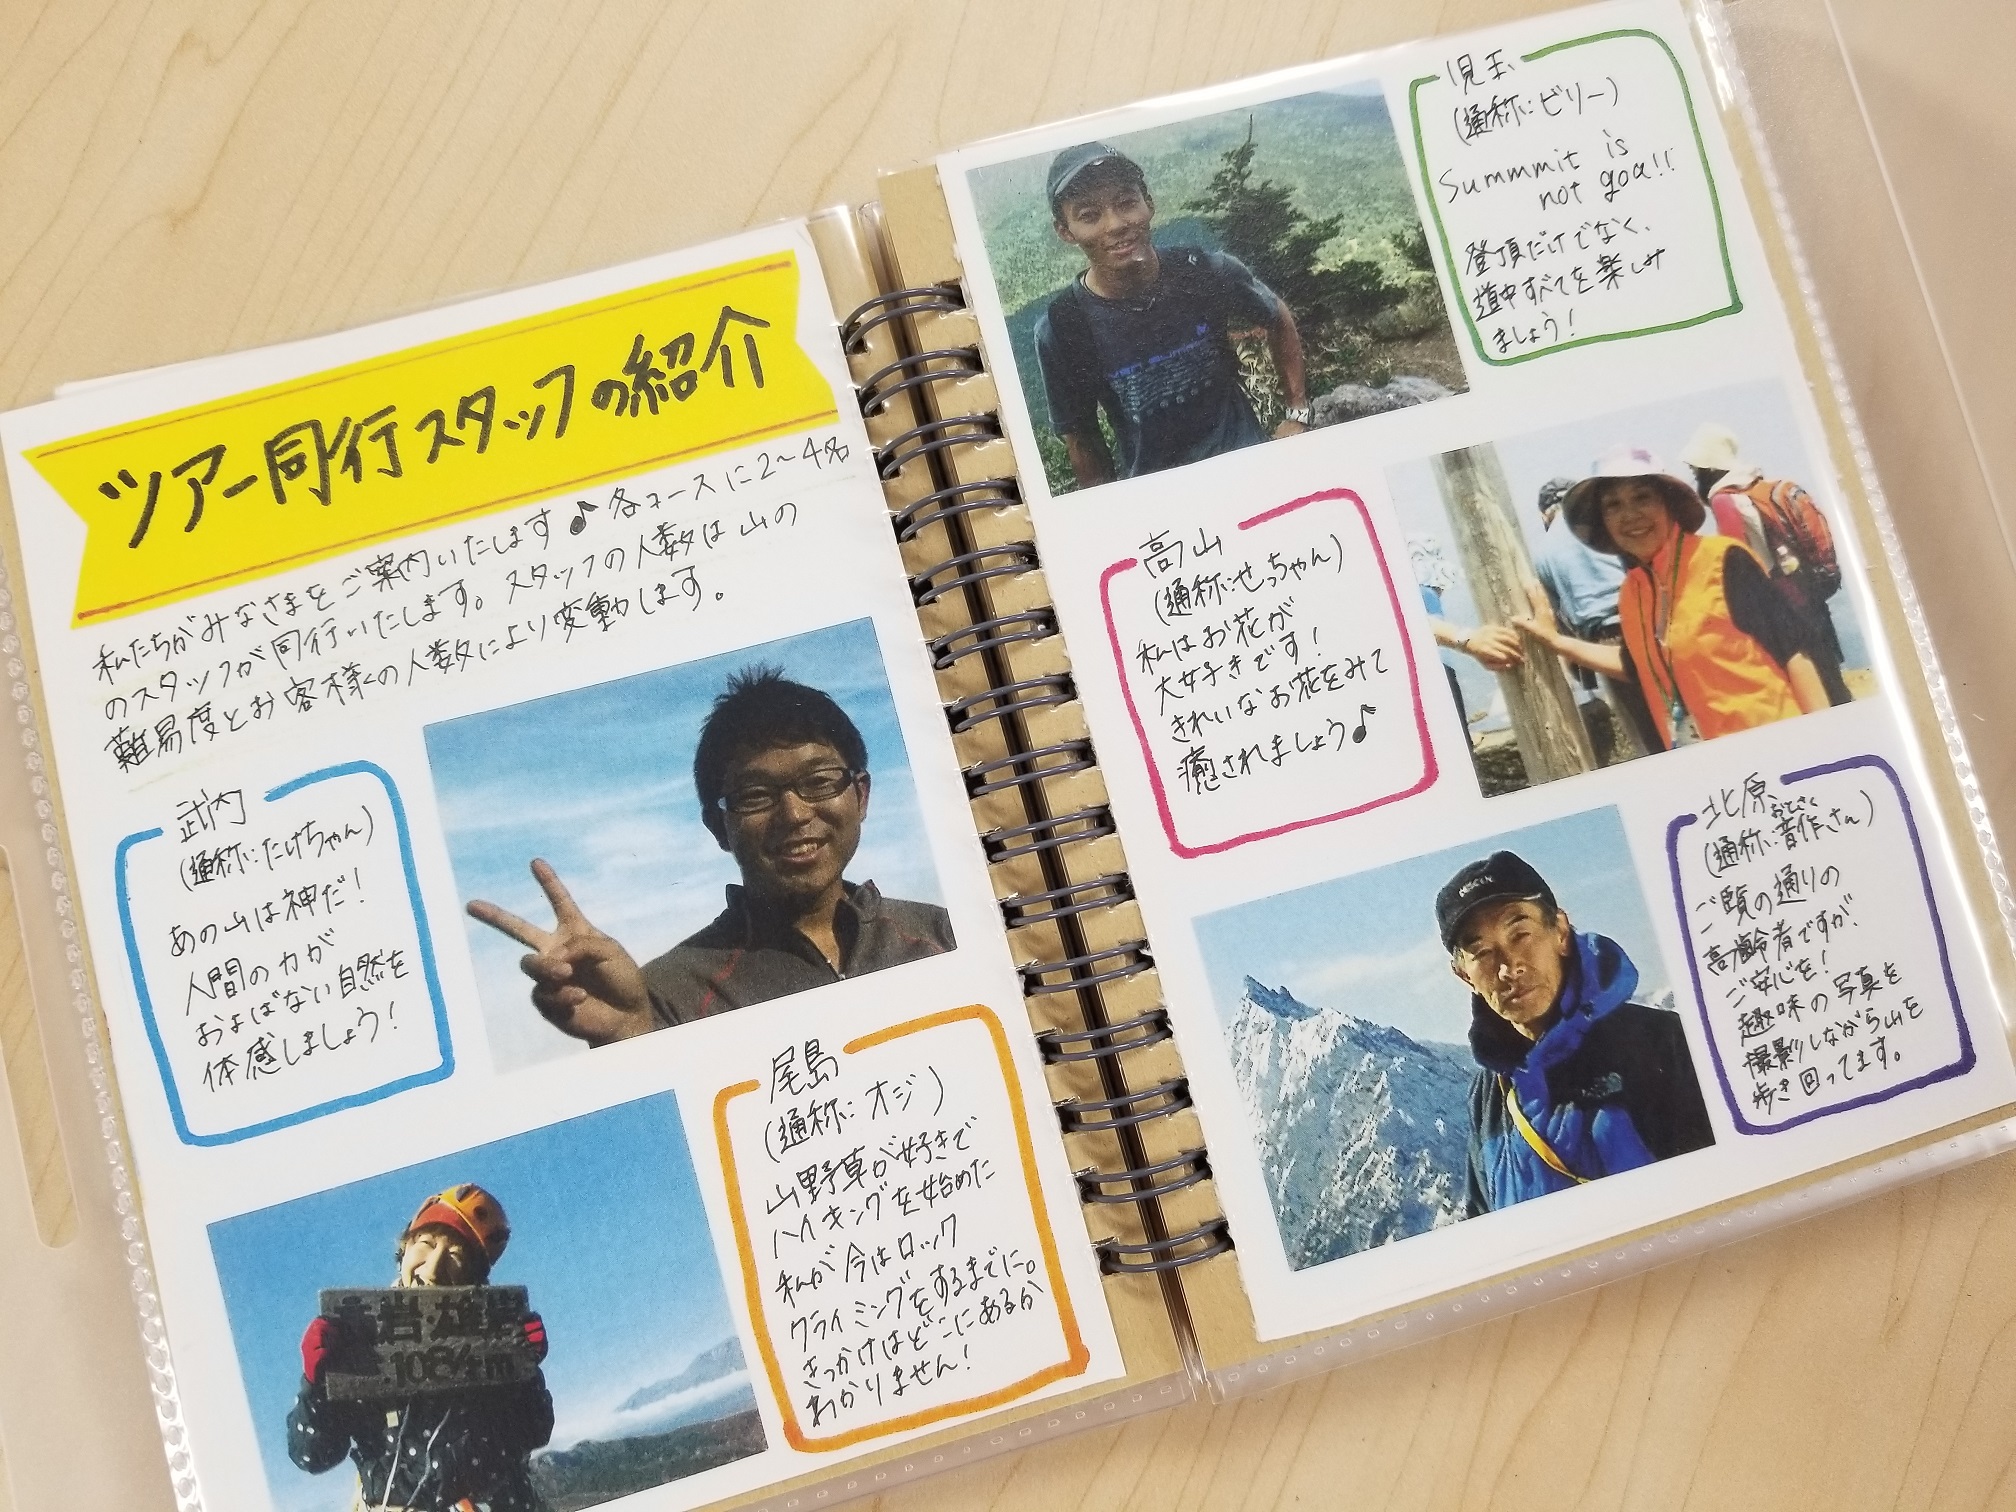 ツアー同行スタッフの紹介
私たちがみなさまをご案内いたします♪各コースに2〜4名
のスタッフが同行いたします。スタッフの人数は山の
難易度とお客様の人数により変動します。
武内
(通称:たけちゃん)
あの山は神だ!
人間の力が
およばない自然を
体感しましょう!
尾島
(通称:オジ)
山野草が好きで
ハイキングを始めた
私が今はロック
クライミングをするまでに。
きっかけはどこにあるか
わかりません!
岩雄岩
児玉
(通称:ビリー)
Summmit is
not goa!!
登頂だけでなく、
道中すべてを楽しみ
ましょう!
高山
(通称:せっちゃん)
私はお花が
大好きです!
きれいなお花をみて
癒されましょう♪
北原
おとさく
(通称:音作さん)
ご覧の通りの
高齢者ですが、
ご安心を!
趣味の写真を
撮影しながら山を
歩き回ってます。